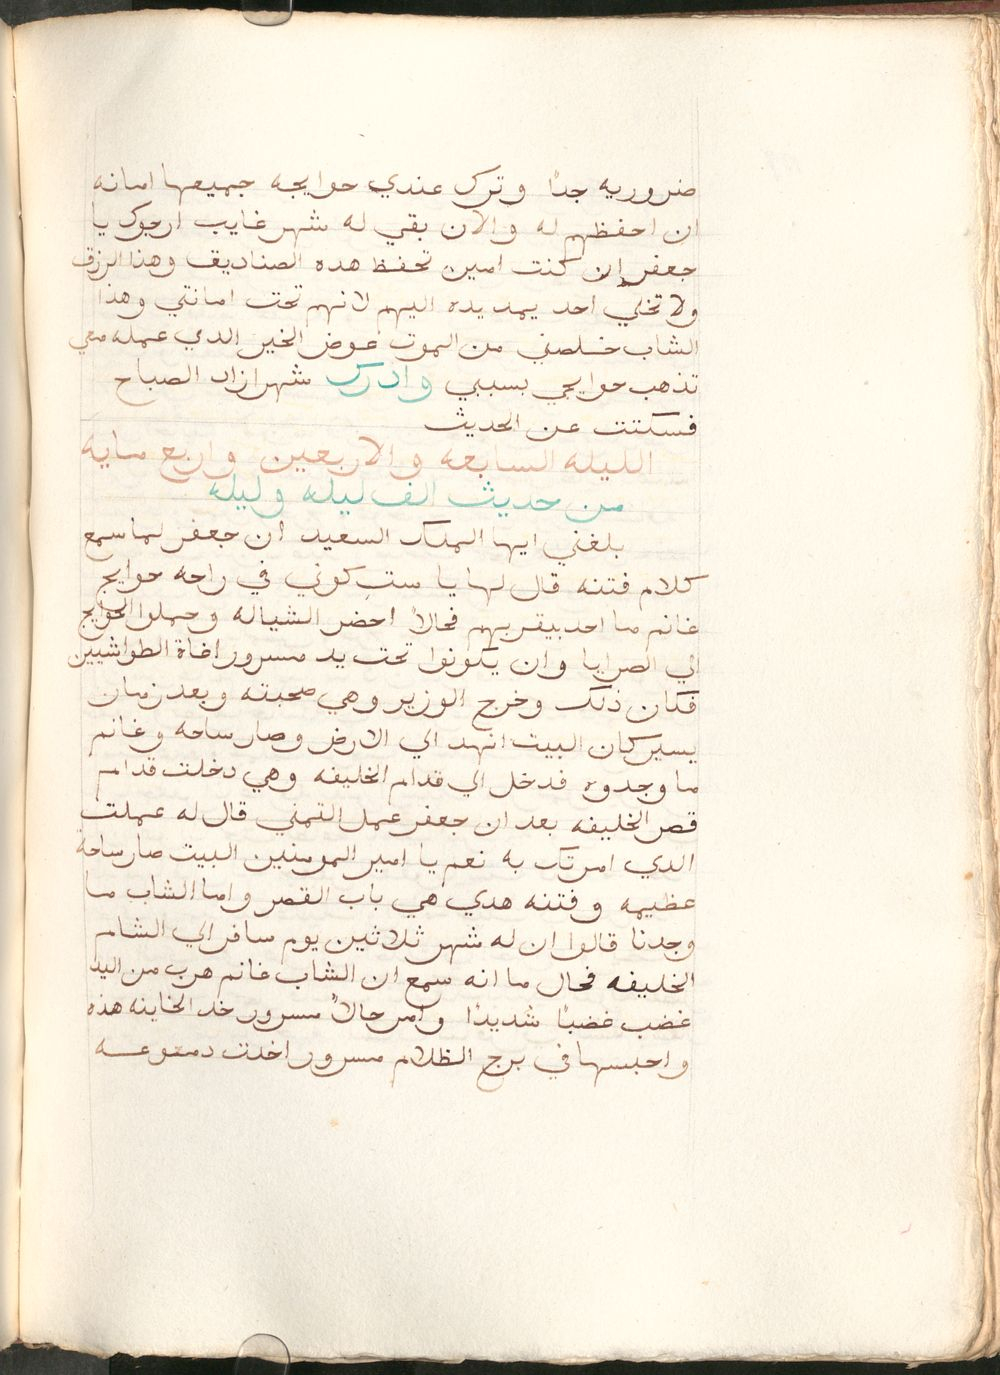 ضروريه جدًا وترك عندي حوايجه جميعها امانه
ان احفظهم له والان بقي له شهر غايب ارجوك يا
جعفر ان كنت امين تحفظ هده الصناديق وهذا الرزق
ولا تخلي احد يمد يده اليهم لانهم تحت امانتي وهذا
الشاب خلصني من الموت عوض الخير الدي عمله معي
تذهب حوايجي بسببي وادرك شهرازاد الصباح
فسكتت عن الحديث
الليله السابعه والاربعين واربع مايه
من حديث الف ليله وليله
بلغني ايها الملك السعيد ان جعفر لما سمع
كلام فتنه قال لها يا ست كوني في راحه حوايج
غانم ما احد بيقربهم فحالاً احضر الشياله وحملوا الحوايج
الي الصرايا وان يكونوا تحت يد مسرور اغاة الطواشيين
فكان ذلك وخرج الوزير وهي صحبته وبعد زمان
يسير كان البيت انهد الي الارض وصار ساحه وغانم
ما وجدوه فدخل الي قدام الخليفه وهي دخلت قدام
قصر الخليفه بعد ان جعفر عمل التمني قال له عملت
الدي امرتك به نعم يا امير المومنين البيت صار ساحة
عظيمه وفتنه هدي هي باب القصر واما الشاب ما
وجدنا قالوا ان له شهر ثلاثين يوم سافر الي الشام
الخليفه فحال ما انه سمع ان الشاب غانم هرب من اليد
غضب غضبًا شديدًا وامر حالاً مسرور خد الخاينه هذه
واحبسها في برج الظلام مسرور اخدت دموعه